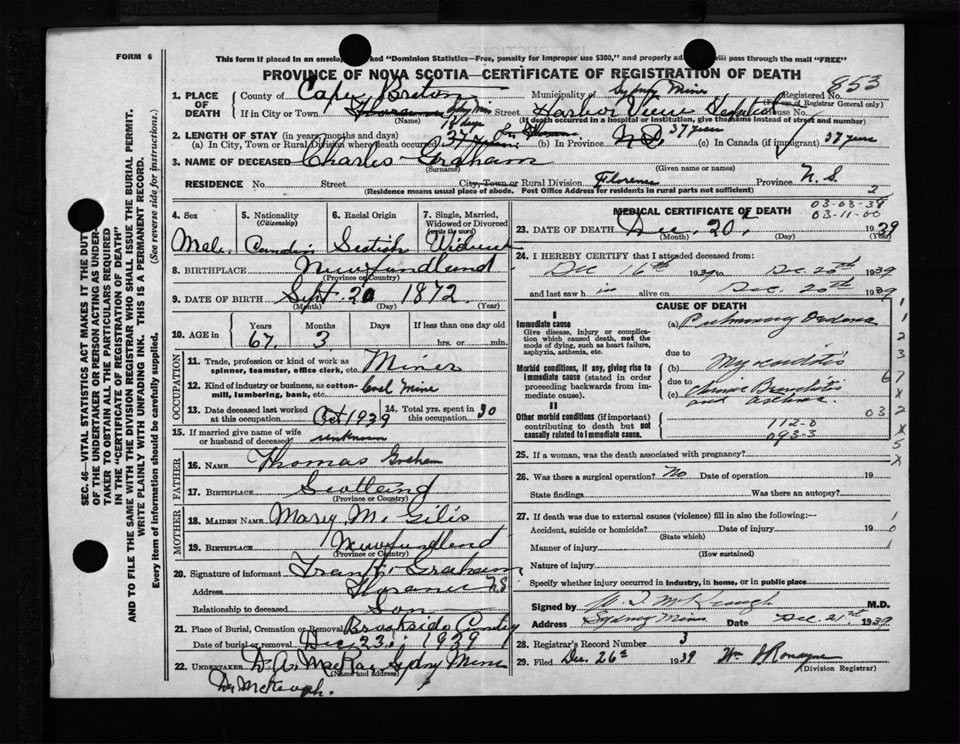 FORM 6
This form if placed in an envelope marked "Dominion Statistics—Free, penalty for improper use $300," and properly addressed will pass through the mail "FREE"
PROVINCE OF NOVA SCOTIA—CERTIFICATE OF REGISTRATION OF DEATH
853
1. PLACE OF DEATH County of Cape Breton Municipality of Sydney Mine Registered No.
(For use of Registrar General only)
If in City or Town Street Harbor View House No.
(Name) (If death occurred in a hospital or institution, give the name instead of street and number)
2. LENGTH OF STAY (in years, months and days)
(a) In City, Town or Rural Division where death occurred 37 (b) In Province 37 years (c) In Canada (if immigrant) 37 years
3. NAME OF DECEASED Charles Graham
(Surname) (Given name or names)
RESIDENCE No. Street City, Town or Rural Division Florence Province N. S.
(Residence means usual place of abode. Post Office Address for residents in rural parts not sufficient)
2
4. Sex 5. Nationality 6. Racial Origin 7. Single, Married, Widowed or Divorced
(Citizenship) (write the word)
Male Scotish
8. BIRTHPLACE Newfundlend
(Province or Country)
9. DATE OF BIRTH Sept. 20 1872
(Month) (Day) (Year)
10. AGE in Years Months Days If less than one day old
67 3 hrs. or min.
OCCUPATION
11. Trade, profession or kind of work as spinner, teamster, office clerk, etc. Miner
12. Kind of industry or business, as cotton-mill, lumbering, bank, etc. Coal Mine
13. Date deceased last worked at this occupation Oct 1939 14. Total yrs. spent in this occupation 30
15. If married give name of wife or husband of deceased unknown
FATHER
16. NAME Thomas Graham
17. BIRTHPLACE Scotleind
(Province or Country)
MOTHER
18. MAIDEN NAME Mary M. Gilis
19. BIRTHPLACE Newfundlend
(Province or Country)
20. Signature of informant Graham
Address Florence N S
Relationship to deceased Son
21. Place of Burial, Cremation or Removal Brookside
Date of burial or removal Dec 23 1939
22. UNDERTAKER D. A. MacRae Sydney Mine
(Name and address)
Dr McKeough.
MEDICAL CERTIFICATE OF DEATH
03-03-38
03-11-00
23. DATE OF DEATH Dec. 20 1939
(Month) (Day) (Year)
24. I HEREBY CERTIFY that I attended deceased from:
Dec 16th 1939 to Dec. 20th 1939
and last saw h in alive on Dec. 20th 1939
CAUSE OF DEATH
I
Immediate cause
Give disease, injury or complication which caused death, not the mode of dying, such as heart failure, asphyxia, asthenia, etc.
(a) Pulmonary Oedema
due to
Morbid conditions, if any, giving rise to immediate cause (stated in order proceeding backwards from immediate cause).
(b) Myocarditis
due to
(c) Chronic Bronchitis
and asthma
II
Other morbid conditions (if important) contributing to death but not causally related to immediate cause.
112-0
093-3
25. If a woman, was the death associated with pregnancy?
26. Was there a surgical operation? No Date of operation 19
State findings Was there an autopsy?
27. If death was due to external causes (violence) fill in also the following:—
Accident, suicide or homicide? Date of injury 19
(State which)
Manner of injury
(How sustained)
Nature of injury
Specify whether injury occurred in industry, in home, or in public place
Signed by McKeough M.D.
Address Sydney Mines Date Dec. 21st 1939
28. Registrar's Record Number 3
29. Filed Dec. 26th 1939 Wm J Ronayne
(Division Registrar)
SEC. 46—VITAL STATISTICS ACT MAKES IT THE DUTY OF THE UNDERTAKER OR PERSON ACTING AS UNDERTAKER TO OBTAIN ALL THE PARTICULARS REQUIRED IN THE "CERTIFICATE OF REGISTRATION OF DEATH"
AND TO FILE THE SAME WITH THE DIVISION REGISTRAR WHO SHALL ISSUE THE BURIAL PERMIT.
WRITE PLAINLY WITH UNFADING INK. THIS IS A PERMANENT RECORD.
Every item of Information should be carefully supplied. (See reverse side for instructions.)